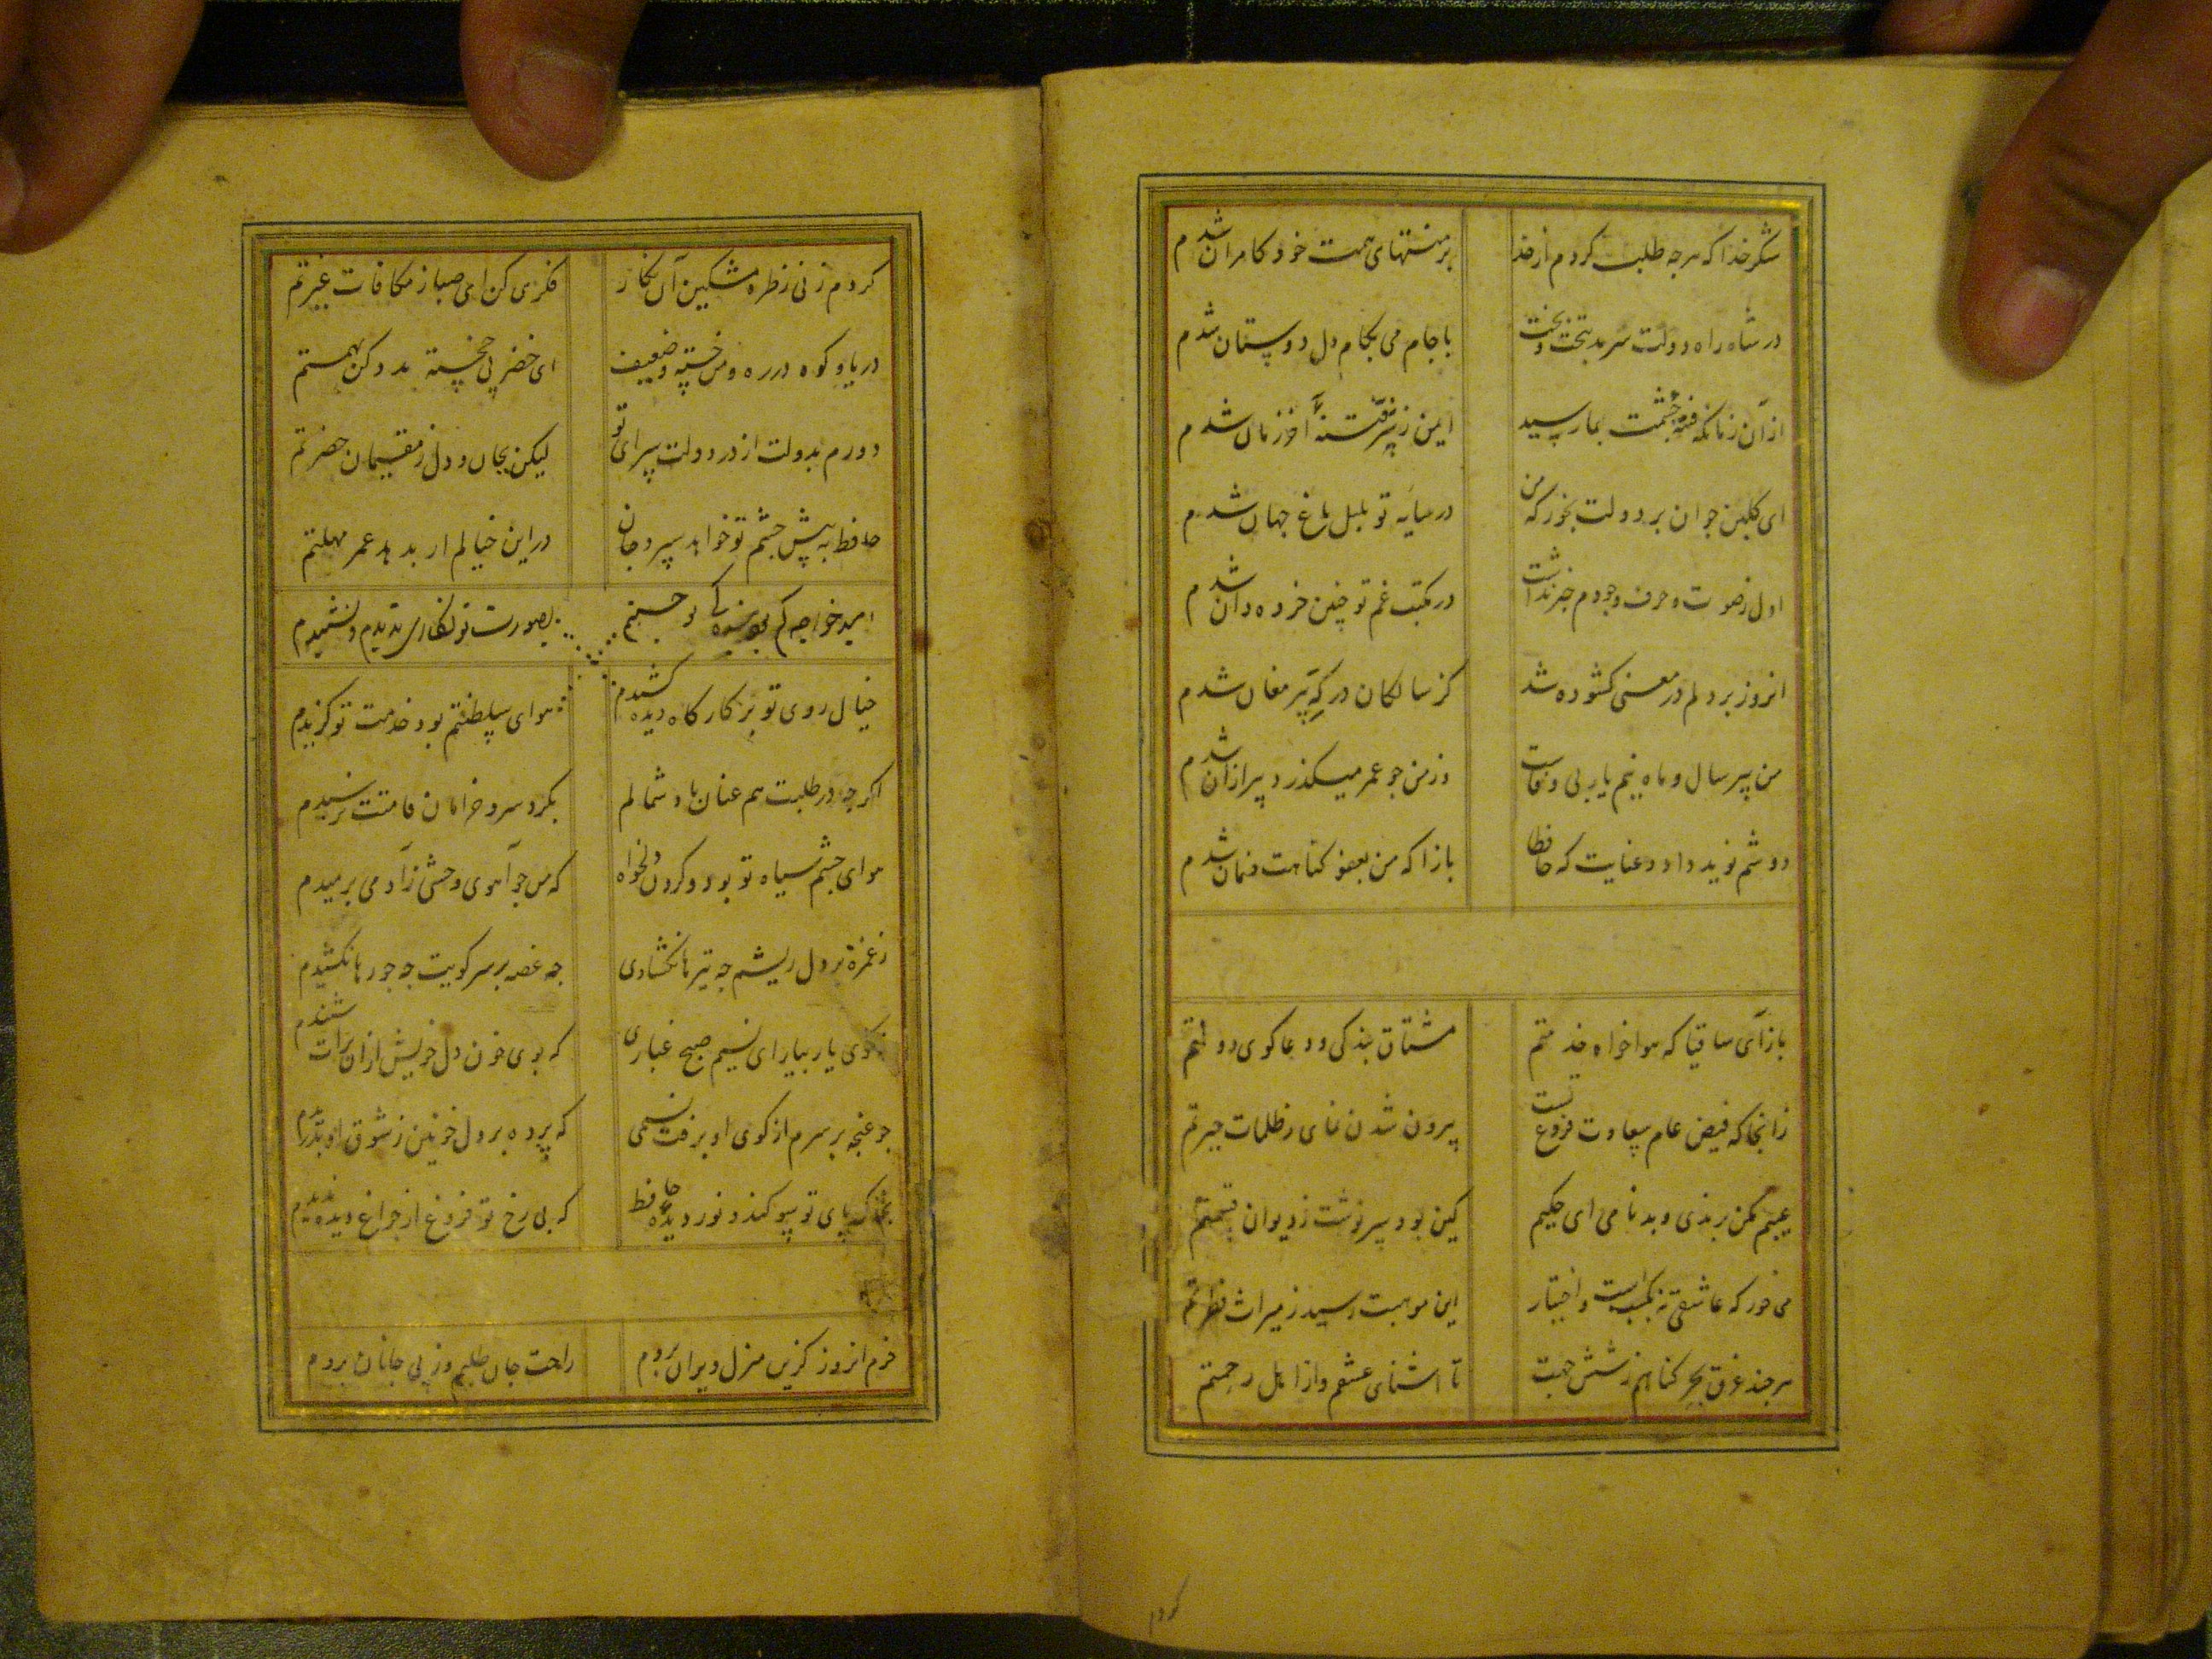 شکر خدا که هرچه طلب کردم از خدا بر منتهای همت خود کامران شدم
در شاه راه دولت سرمد بتخت و بخت با جام می بکام دل دوستان شدم
از آن زمانکه فتنه چشمت بمن رسید ایمن ز شر فتنه آخر زمان شدم
ای گلبن جوان بر دولت بخور که من در سایه تو بلبل باغ جهان شدم
اول ز صوت و حرف وجودم خبر نداشت در مکتب غم تو چنین خرده دان شدم
آنروز بر دلم در معنی گشوده شد کز سالکان درگه پیر مغان شدم
من پیر سال و ماه نیم یار بی وفاست وز من چو عمر میگذرد پیر از آن شدم
دوشم نوید داد عنایت که حافظا بازآ که من بعفو گناهت ضمان شدم
بازآی ساقیا که هواخواه خدمتم مشتاق بندگی و دعاگوی دولتم
زانجا که فیض عام سعادت فروغ تست بیرون شدن نمای ز ظلمات حیرتم
عیبم مکن برندی و بدنامی ای حکیم کین بود سرنوشت ز دیوان قسمتم
می خور که عاشقی نه بکسبست و اختیار این موهبت رسید ز میراث فطرتم
هرچند غرق بحر گناهم ز شش جهت تا آشنای عشقم و از اهل رحمتم
گردم
کردم زنی ز طره مشکین آن نگار فکری کن ای صبا ز مکافات غیرتم
دریا و کوه در ره و من خسته و ضعیف ای خضر پی خجسته مدد کن بهمتم
دورم بدولت از در دولت سرای تو لیکن بجان و دل ز مقیمان حضرتم
حافظ به پیش چشم تو خواهد سپرد جان در این خیالم ار بدهد عمر مهلتم
امید خواجه بصورت تو نگاری ندیدم و نشنیدم
خیال روی تو بر کارگاه دیده کشیدم هوای سلطنتم بود خدمت تو گزیدم
اگرچه در طلبت هم عنان باد شمالم بگرد سرو خرامان قامتت نرسیدم
هوای چشم سیاه تو بود و گردن دلخواه که من چو آهوی وحشی ز آدمی برمیدم
ز غمزه بر دل ریشم چه تیرها نگشادی چه غصه بر سر کویت چه جورها نکشیدم
ز کوی یار بیار ای نسیم صبح غباری که بوی خون دل خویش از آن تراب شنیدم
چو غنچه بر سرم از کوی او برفت نسیمی که پرده بر دل خونین ز شوق او بدریدم
بخاک پای تو سوگند و نور دیده حافظ که بی رخ تو فروغ از چراغ دیده ندیدم
خرم آنروز کزین منزل ویران بروم راحت جان طلبم وز پی جانان بروم